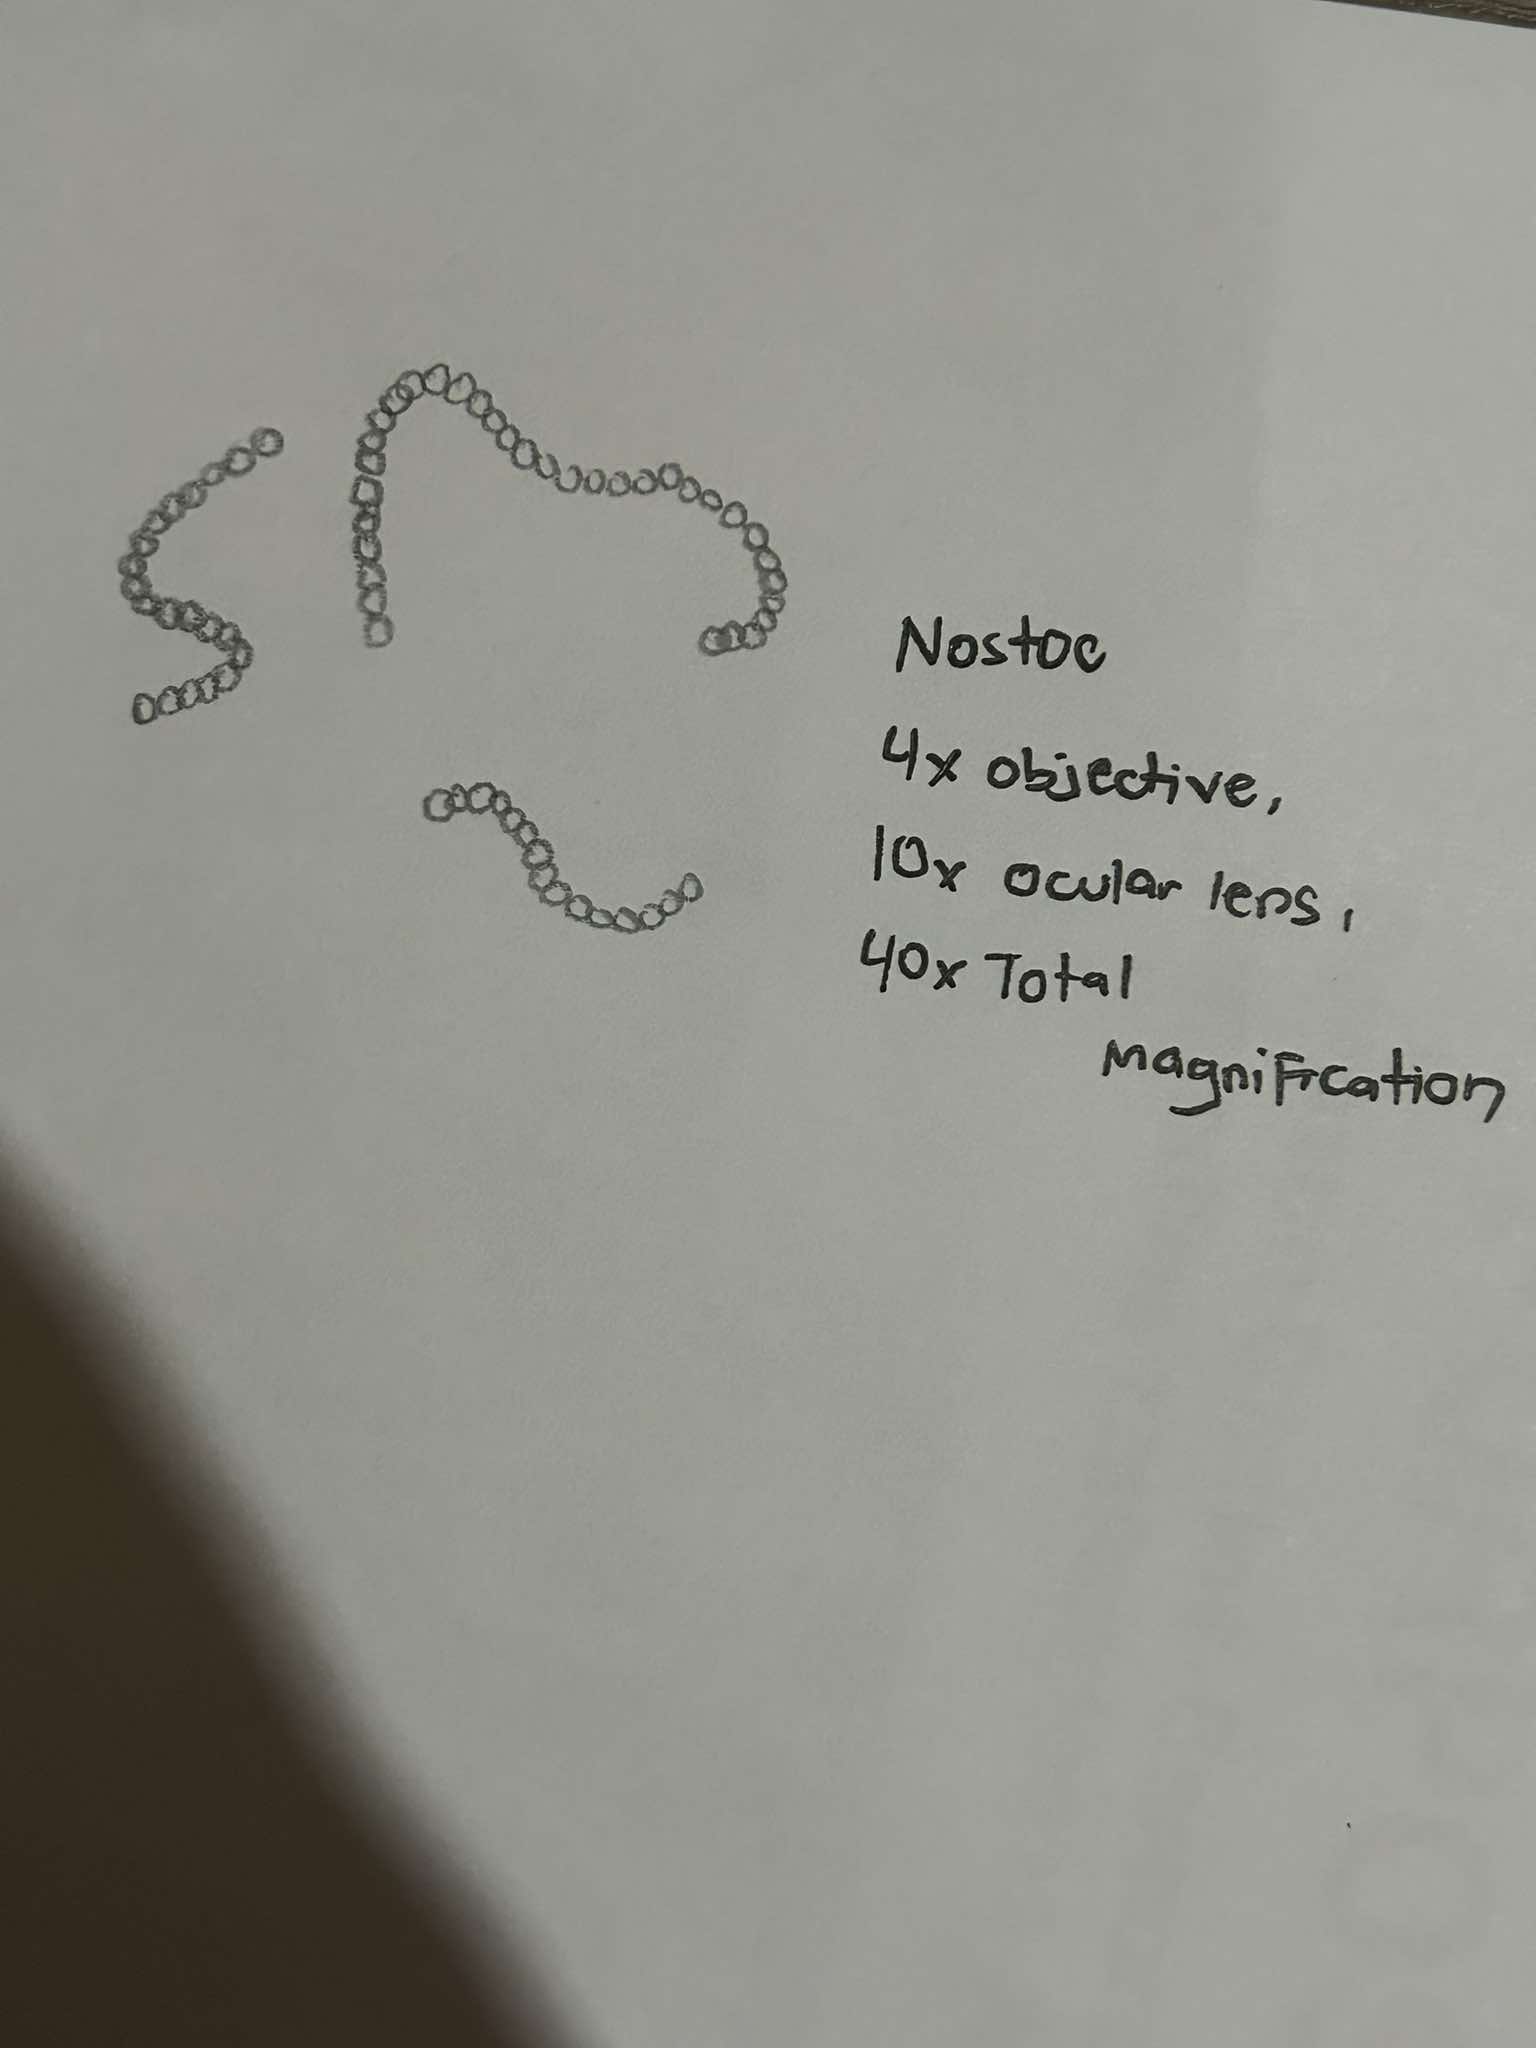 Nostoc
4x objective,
10x ocular lens,
40x Total
magnification